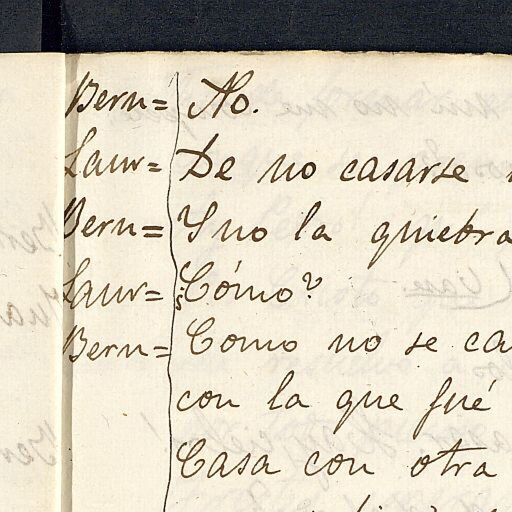 Bern= No.
Laur= De no casarse
Bern= Y no la quiebra
Laur= ¿Cómo?
Bern= Como no se ca
con la que fué
Casa con otra